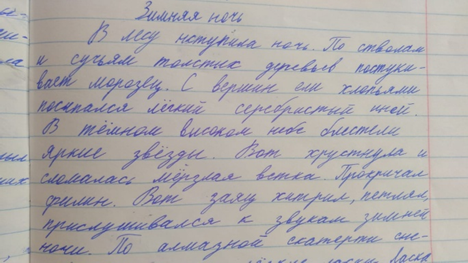 Зимняя ночь
В лесу нступила ночь. По стволам
и сучьям толстых деревьев постуки-
вает морозец. С вершин ели хлопьями
посыпался лёгкий серебристый иней.
В тёмном высоком небе блестели
яркие звёзды. Вот хрустнула и
сломалась мёрзлая ветка. Прокричал
филин. Вот заяц хитрил, петлял,
прислушивался к звукам зимней
ночи. По алмазной скатерти сне-